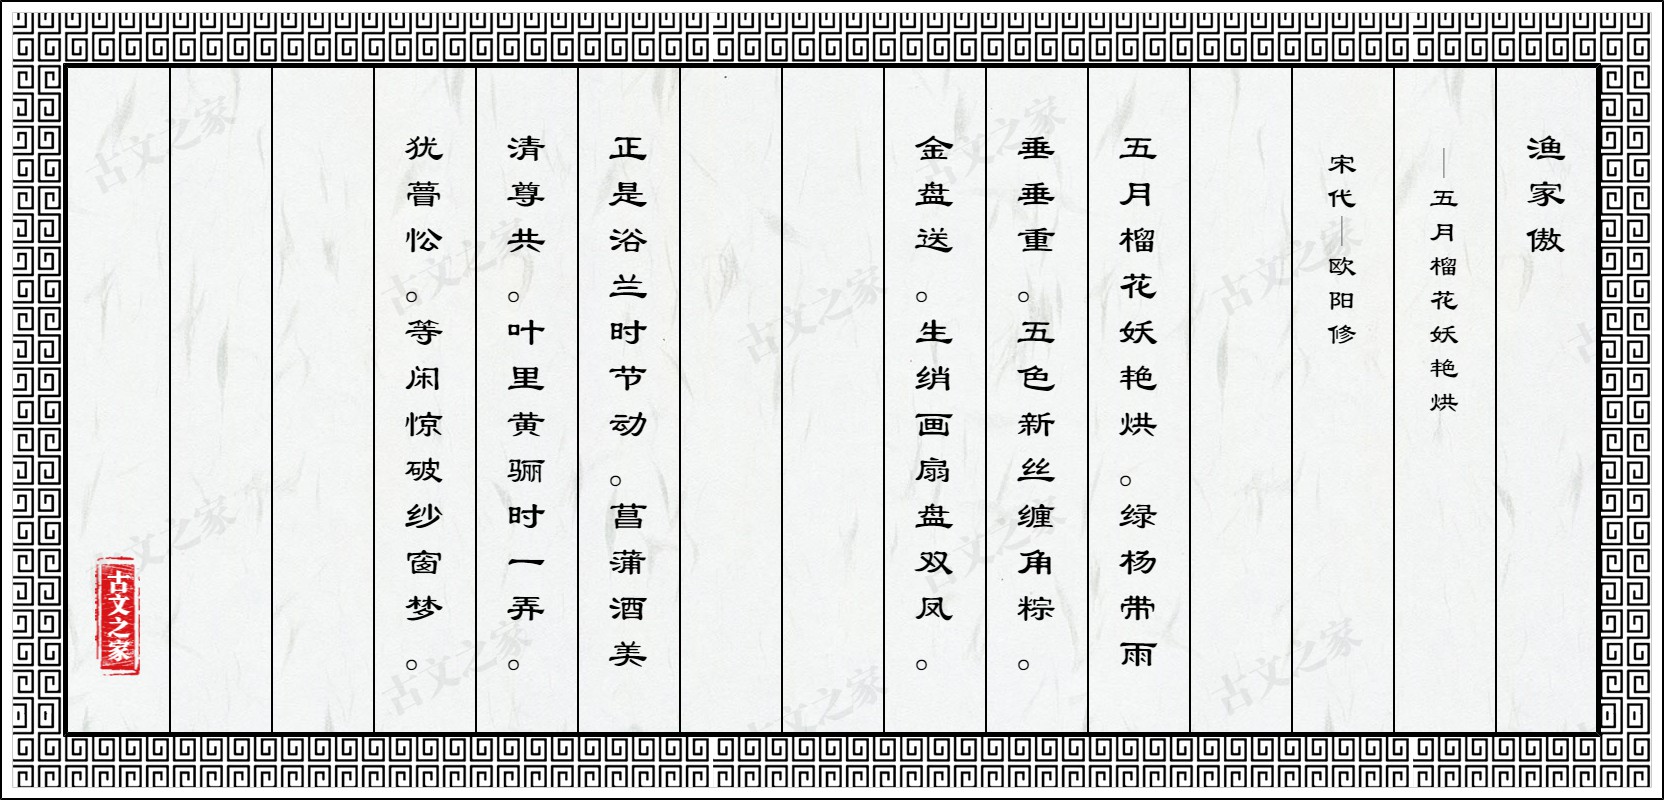 渔家傲
—五月榴花妖艳烘
宋代—欧阳修
五月榴花妖艳烘。绿杨带雨
垂垂重。五色新丝缠角粽。
金盘送。生绡画扇盘双凤。
正是浴兰时节动。菖蒲酒美
清尊共。叶里黄骊时一弄。
犹瞢忪。等闲惊破纱窗梦。
古文之家